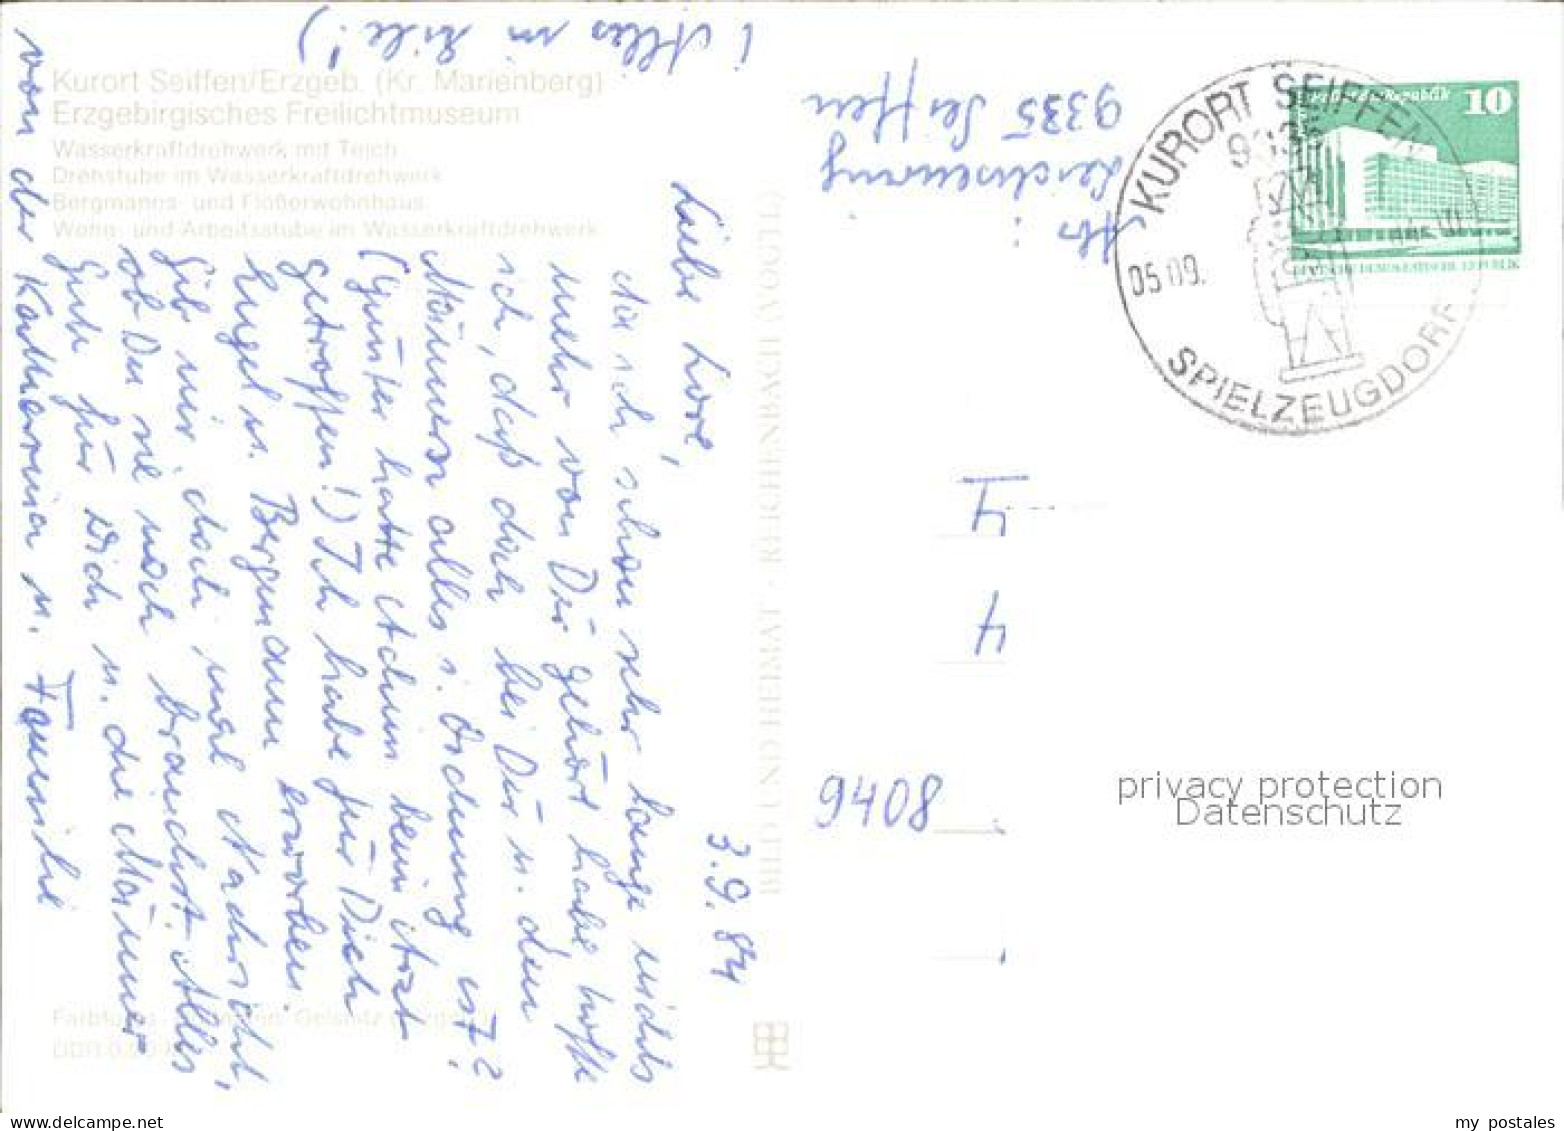 Kurort Seiffen/Erzgeb. (Kr. Marienberg)
Erzgebirgisches Freilichtmuseum
Wasserkraftdrehwerk mit Teich
Drehstube im Wasserkraftdrehwerk
Bergmanns- und Flößerwohnhaus
Wohn- und Arbeitsstube im Wasserkraftdrehwerk
3.9.84
Liebe Lore,
da ich schon sehr lange nichts
mehr von Dir gehört habe, hoffe
ich, daß doch bei Dir u. den
Männern alles i. Ordnung ist?
(Günter hatte Achim beim Arzt
getroffen!) Ich habe für Dich
Engel u. Bergmann erworben.
Gib mir doch mal Nachricht,
ob Du sie noch brauchst. Alles
Gute für Dich u. die Männer
von der Katharina u. Familie
(Alles in Eile!)
BILD UND HEIMAT · REICHENBACH (VOGTL)
Abs:
9335 Seiffen
KURORT SEIFFEN
9335
05.09.
SPIELZEUGDORF
10
DEUTSCHE DEMOKRATISCHE REPUBLIK
9408
privacy protection
Datenschutz
my postales